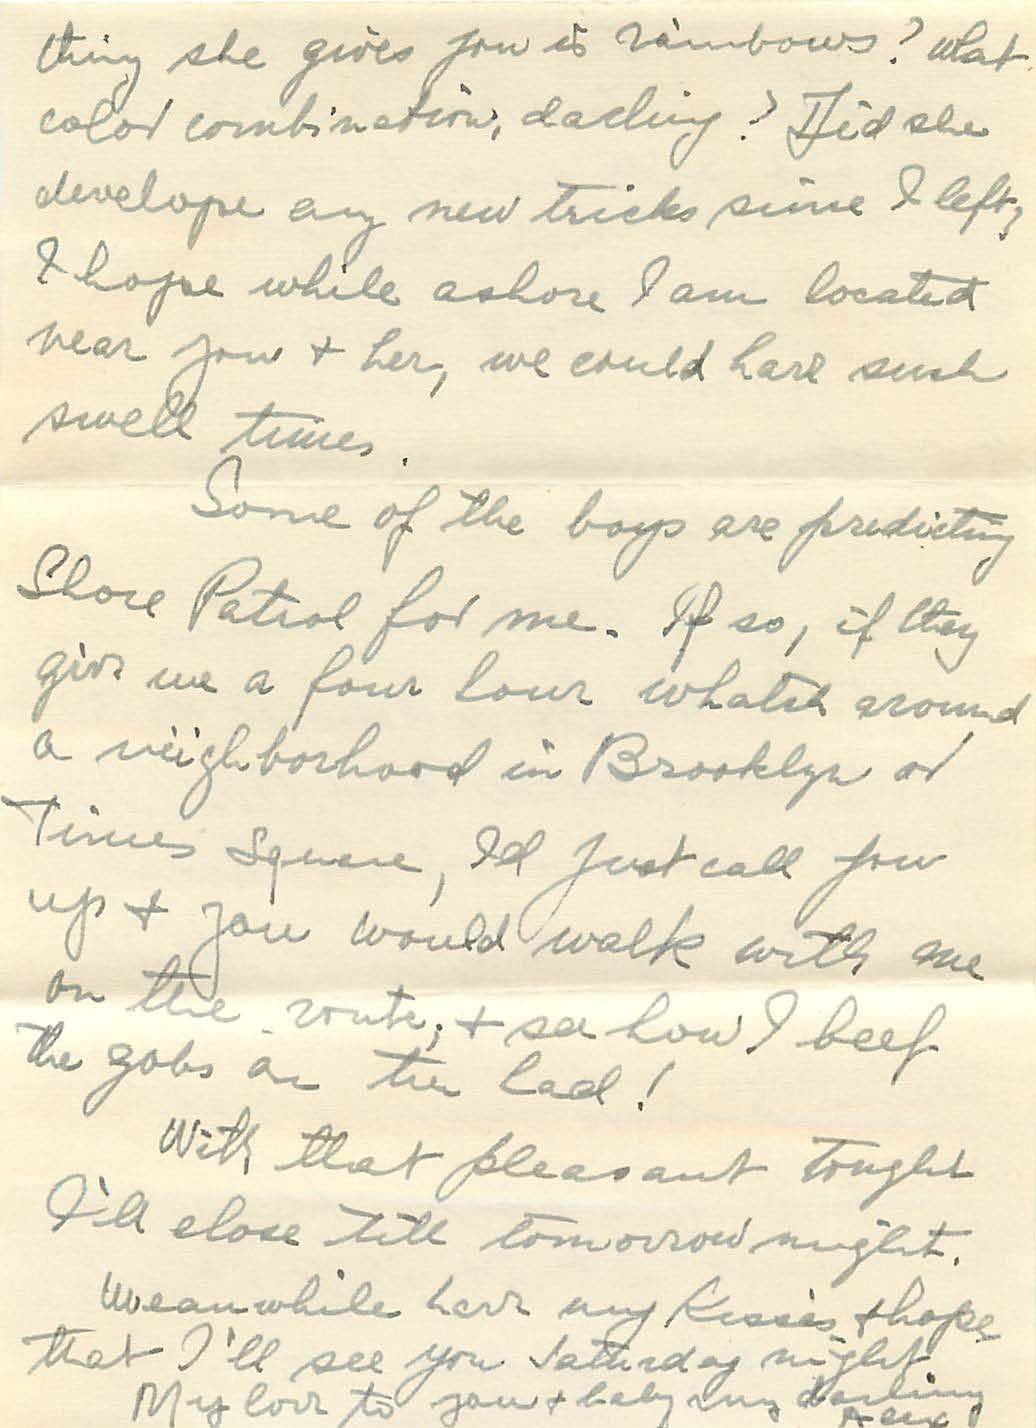 thing she gives you is rainbows? What
color combination, darling? Did she
develope any new tricks since I left,
I hope while ashore I am located
near you + her, we could have such
swell times.
Some of the boys are predicting
Shore Patrol for me. If so, if they
give me a four hour whatch around
a neighborhood in Brooklyn or
Times Square, I'd just call you
up + you would walk with me
on the route, + see how I beef
the gobs on the head!
With that pleasant tought
I'll close till tomorrow night.
Meanwhile have my Kisses + hope
that I'll see you Saturday night
My love to you + baby my darling